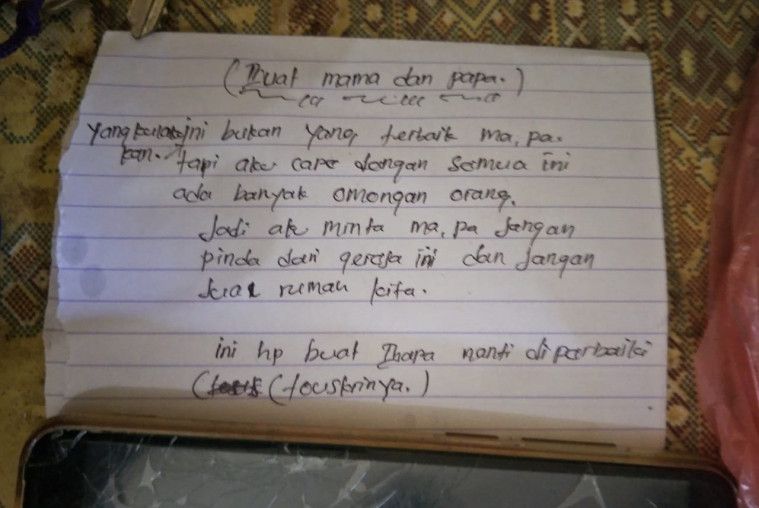 (Buat mama dan papa.)
yang kulakukan ini bukan yang terbaik ma, pa.
tapi aku cape dengan semua ini
ada banyak omongan orang.
Jadi ak minta ma, pa jangan
pinda dari gereja ini dan jangan
jual rumah kita.
ini hp buat Ihara nanti diparbaiki
(touskrinya.)